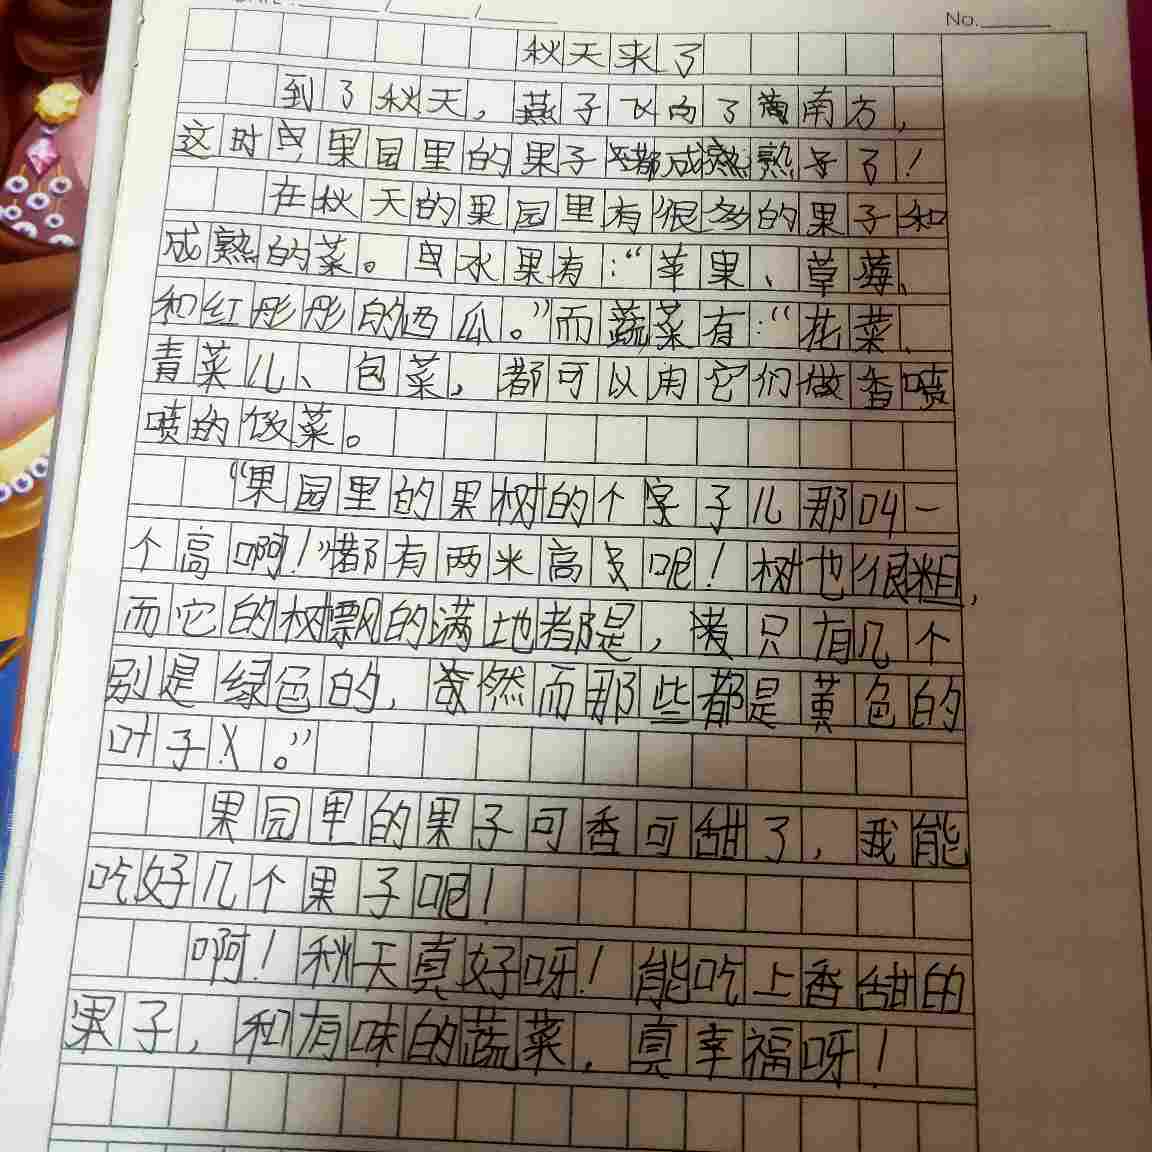 No.
秋天来了
到了秋天，燕子飞向了南方，
这时果园里的果子都成熟了！
在秋天的果园里有很多的果子和
成熟的菜。水果有：“苹果、草莓、
和红彤彤的西瓜。”而蔬菜有：“花菜、
青菜儿、包菜，都可以用它们做香喷
喷的饭菜。
“果园里的果树的个字子儿那叫一
个高啊！”都有两米高呢！树也很粗，
而它的树飘的满地都是，只有几个
别是绿色的，然而那些都是黄色的
叶子。”
果园里的果子可香可甜了，我能
吃好几个果子呢！
啊！秋天真好呀！能吃上香甜的
果子，和有味的蔬菜，真幸福呀！